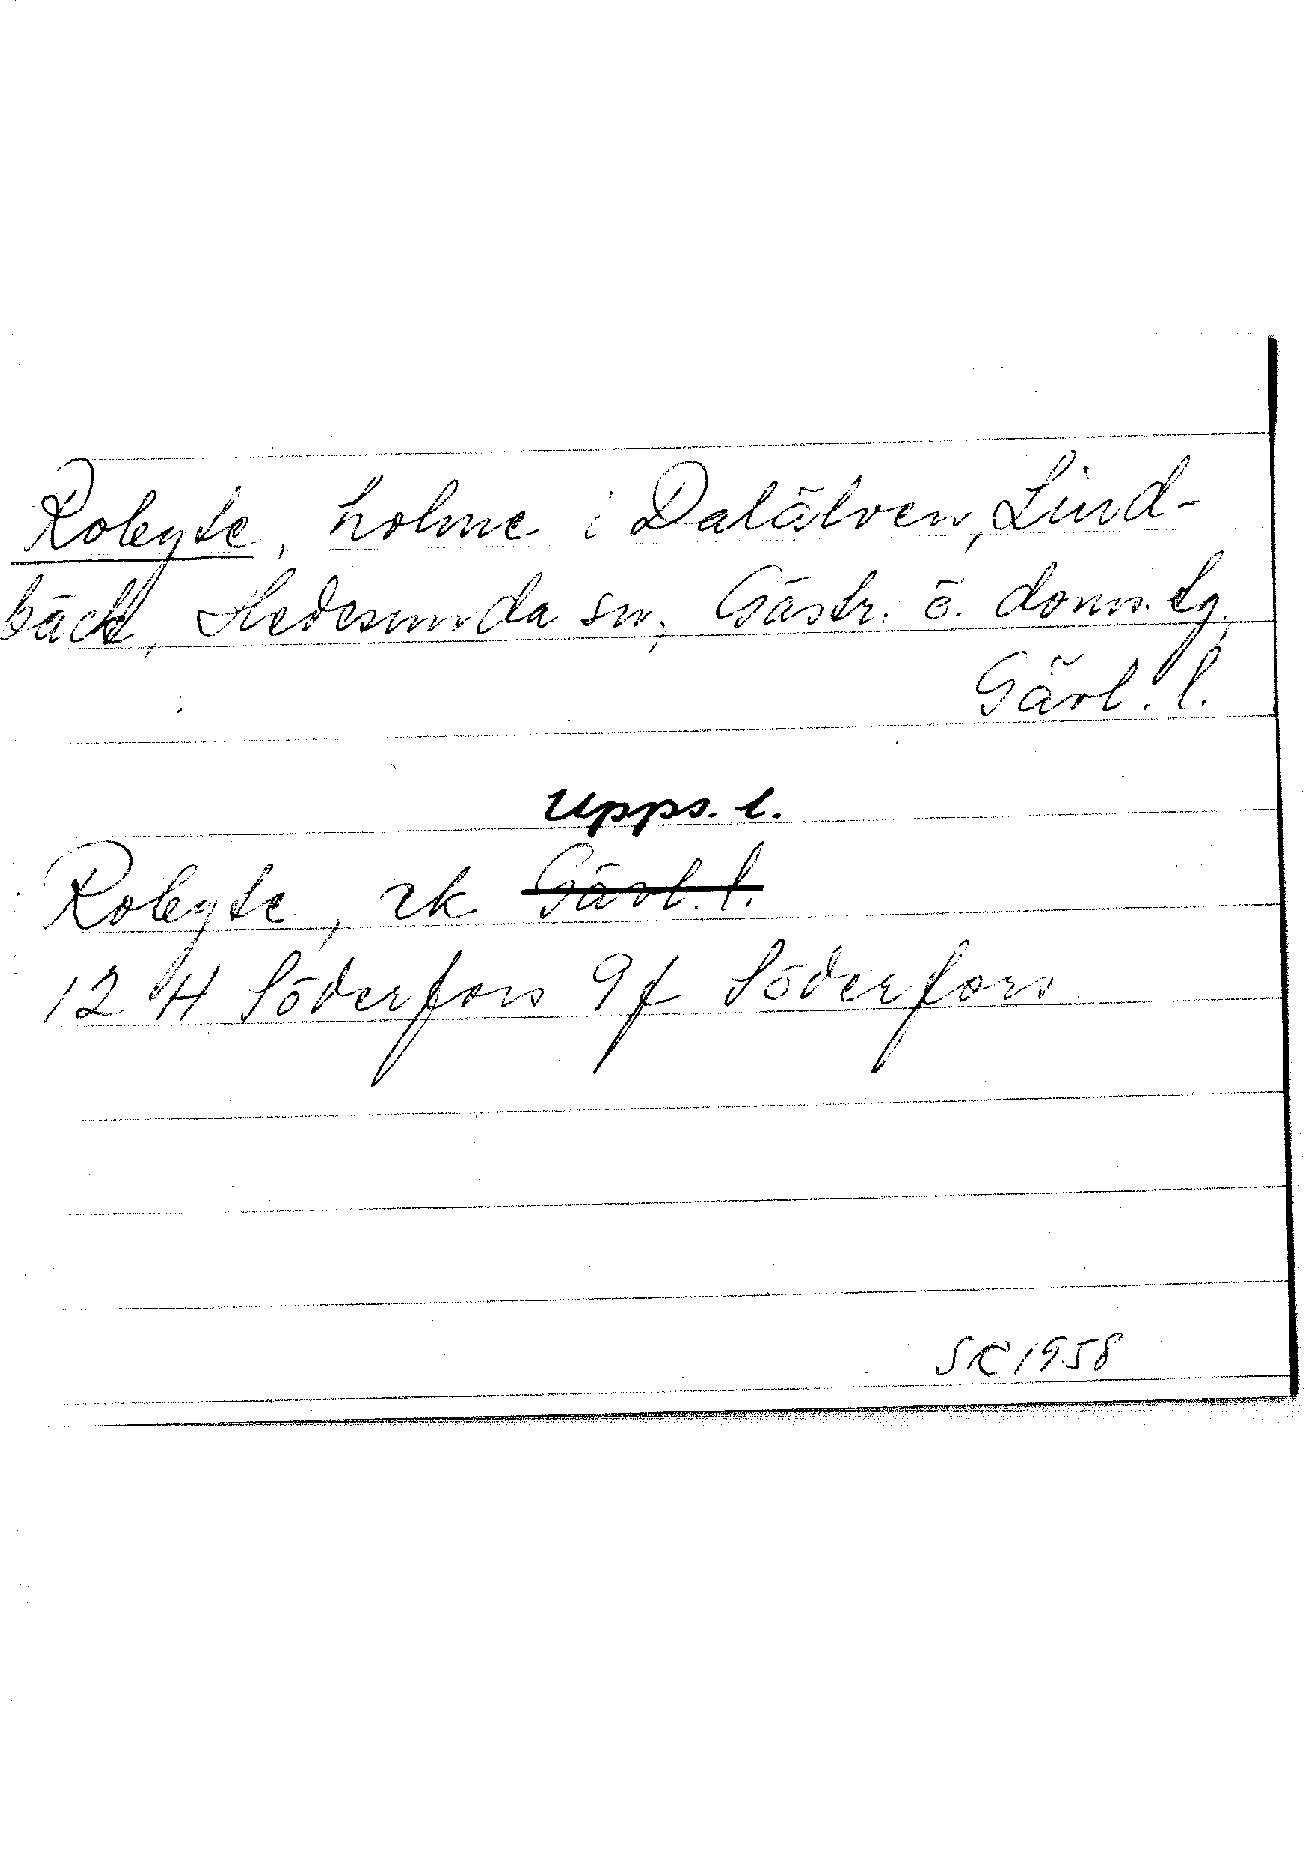 Robyte, holme i Dalälven, Lind-
bäck, Hedesunda sn, Gästr. ö. doms. tg,
Gävl. l.
Upps. l.
Robyte, ek Gävl. l.
12 H Söderfors 9f Söderfors
SR 1958